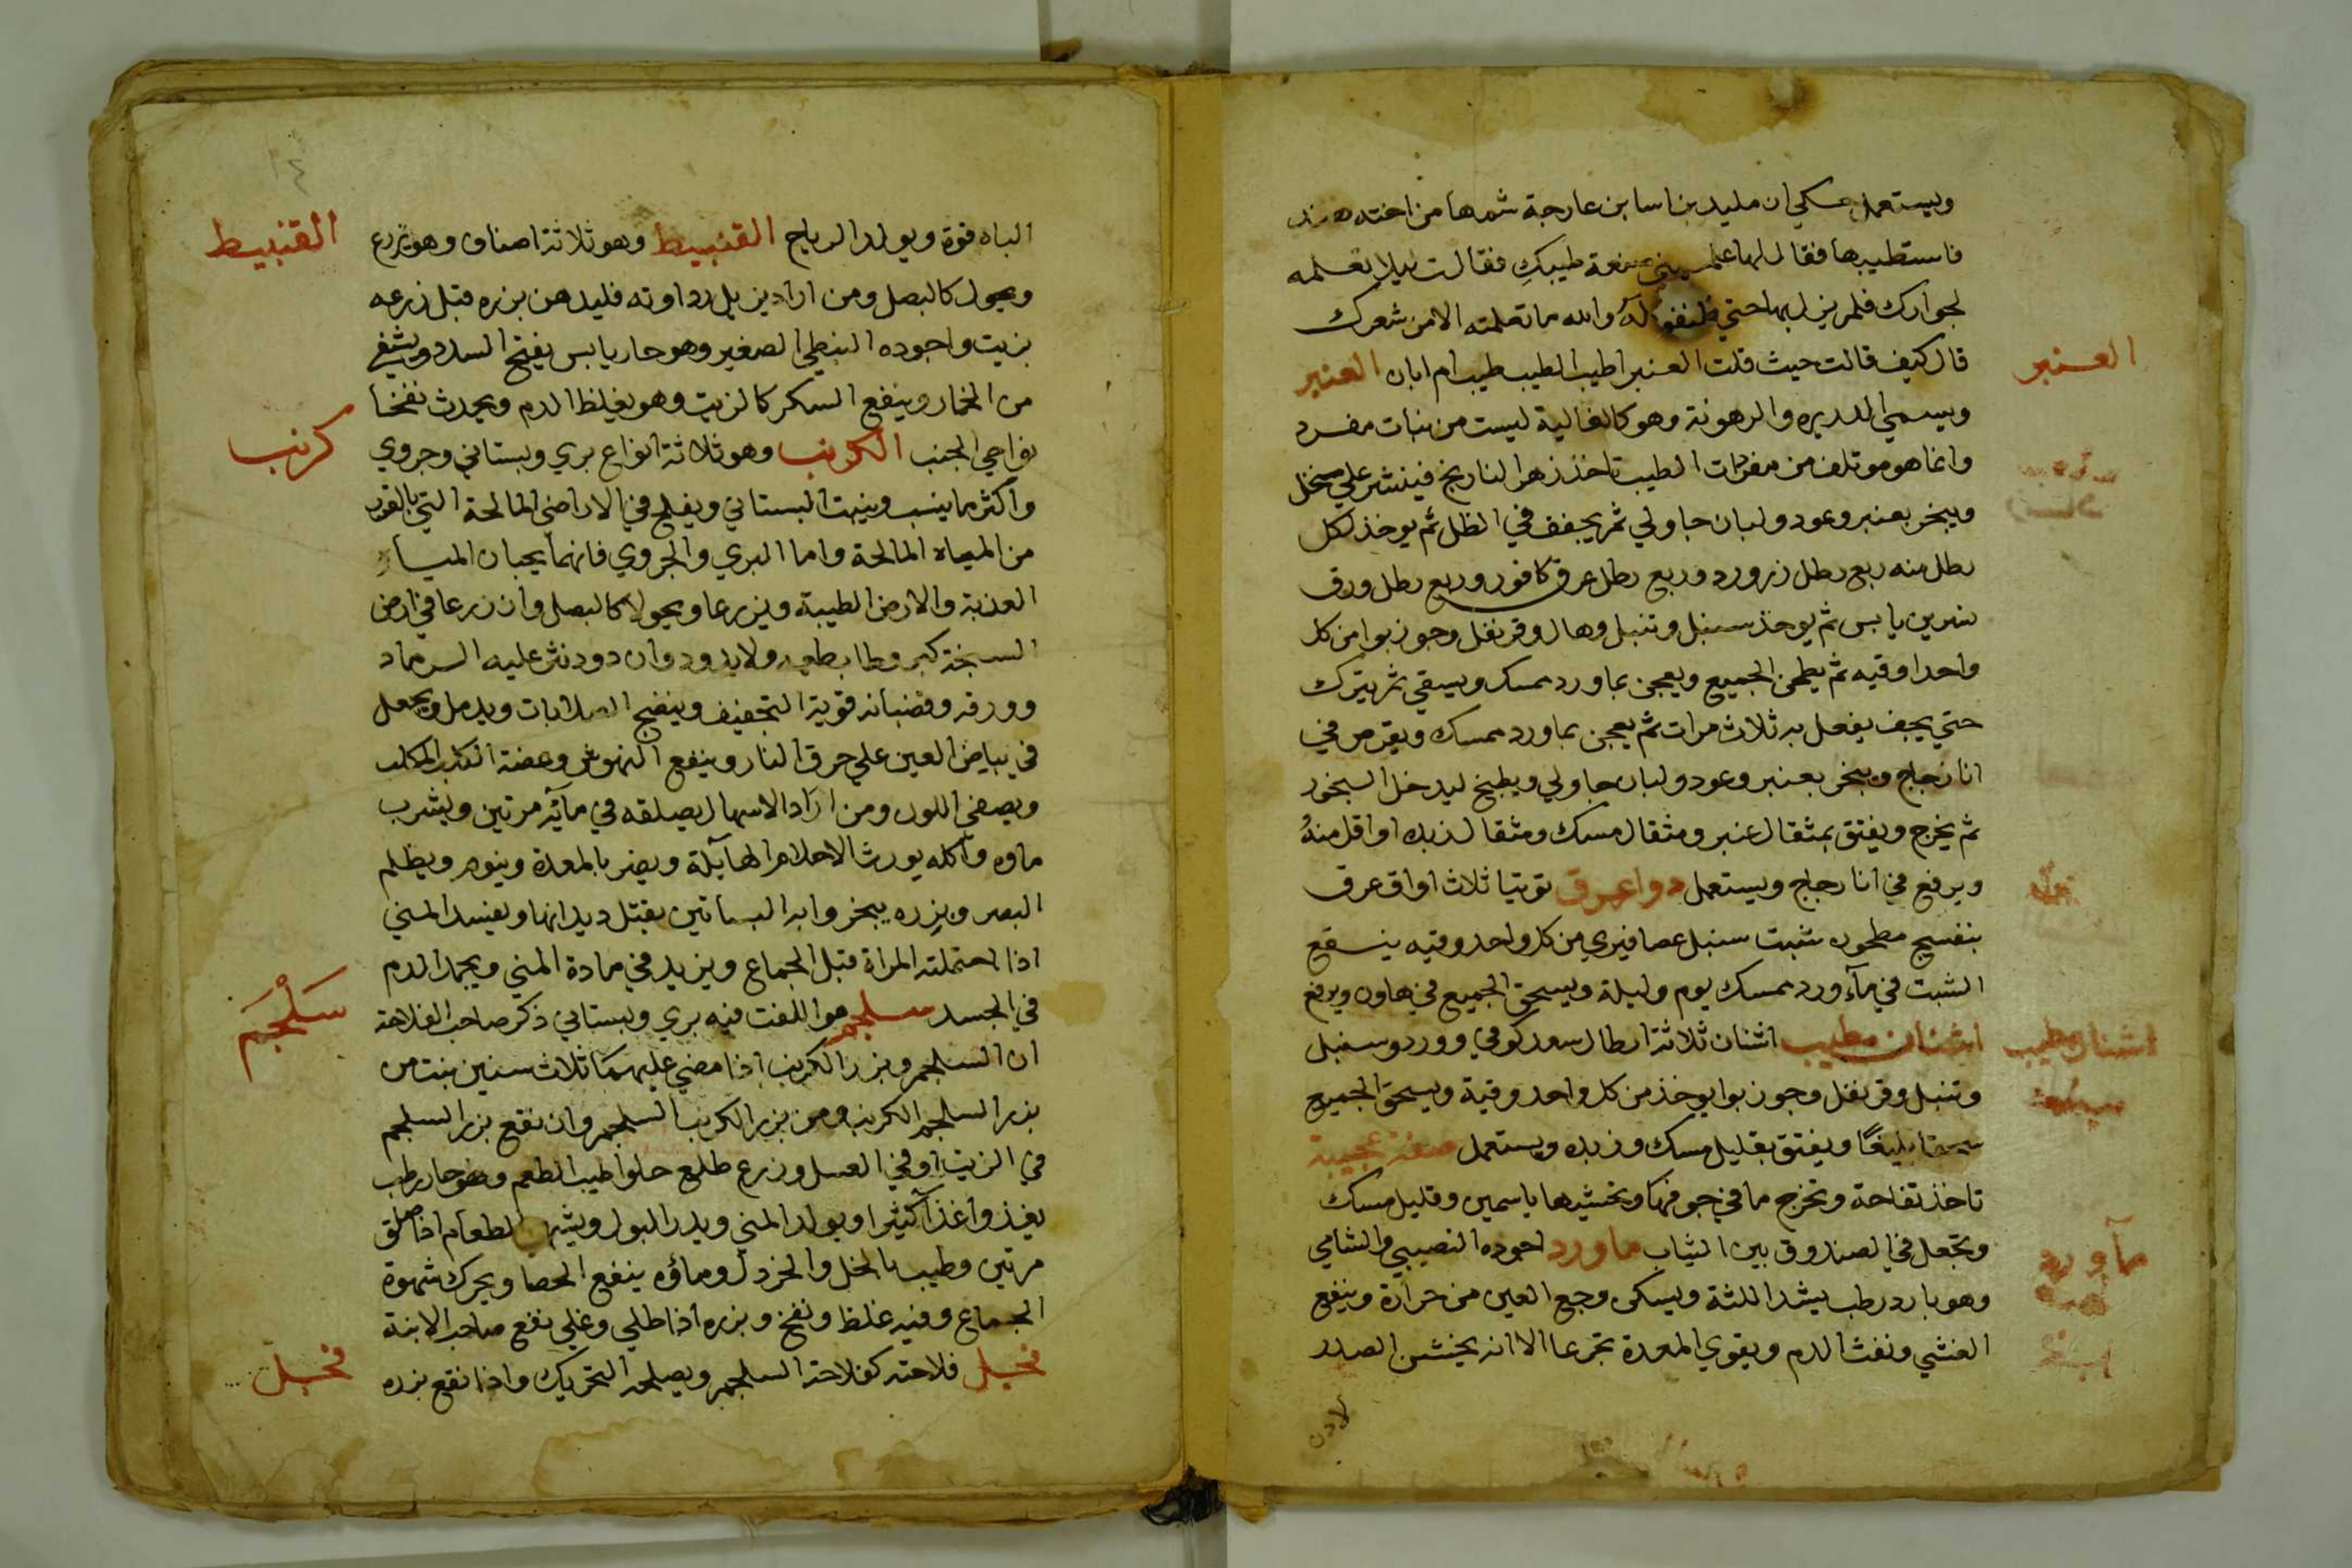 ويستعمل حكي ان مليد بن اسا بن عارجة شمها من اخته هند
فاستطيبها فقال لها علميني صنعة طيبك فقالت ليلا تعلمه
لجوارك فلم يزل بها حتي وانه ما تعلمته الا من شعرك
العنبر
قال كيف قالت حيث قلت العنبر اطيب الطيب طيب ام ابان العنبر
ويسمي الدريره والرهونة وهو كالغالية ليست من نبات مفرد
وانما هو موتلف من مفردات الطيب تاخذ زهر النارنج فينشر علي منخل
ويبخر بعنبر وعود ولبان جاولي ثم يجفف في الظل ثم يوخذ لكل
رطل منه ربع رطل زرورد وربع رطل عرق كافور وربع رطل ورق
نسرين يابس ثم يوخذ سنبل وتنبل وهال وقرنفل وجوزبوا من كل
واحد اوقيه ثم يطحن الجميع ويعجن بماورد ممسك ويسقي ثم يترك
حتي يجف يفعل به ثلاث مرات ثم يعجن بماورد ممسك ويقرص في
انا زجاج ويبخر بعنبر وعود ولبان جاولي ويطبخ ليدخل البخور
ثم يخرج ويفتق بمثقال عنبر ومثقال مسك ومثقال زبده او اقل منه
ويرفع في انا زجاج ويستعمل دوا عرق توتيا ثلاث اواق عرق
بنفسج مطحون شبت سنبل عصافيري من كل واحد وقيه ينقع
الشبت في مآء ورد ممسك يوم وليلة ويسحق الجميع في هاون ويرفع
اشنان مطيب
اشنان مطيب اشنان ثلاثة ارطال سعد كوفي وورد وسنبل
وتنبل وقرنفل وجوزبوا يوخذ من كل واحد وقية ويسحق الجميع
سحقا بليغا ويفتق بقليل مسك وزبده ويستعمل صفة عجيبة
تاخذ تفاحة وتخرج ما في جوفها وتحشيها ياسمين وقليل مسك
مآورد
وتجعل في الصندوق بين الثياب ماورد اجوده النصيبي والشامي
وهو بارد رطب يشد اللثة ويسكن وجع العين من حرارة وينفع
الغشي ونفث الدم ويقوي المعدة تجرعا الا انه يخشن الصدر
لادن
القنبيط
الباه قوة ويولد الرياح القنبيط وهو ثلاثة اصناف وهو يزرع
ويحول كالبصل ومن اراد يزيل رداوته فليدهن بزره قبل زرعه
بزيت واجوده النبطي الصغير وهو حار يابس يفتح السدد ويشفي
من الخمار وينفع السكر كالزيت وهو يغلظ الدم ويحدث نفخا
كرنب
بنواحي الجنب الكرنب وهو ثلاثة انواع بري وبستاني وجروي
واكثر ما ينسب وينبت البستاني ويفلح في الاراضي المالحة التي بالقرب
من المياه المالحة واما البري والجروي فانهما يحبان المياه
العذبة والارض الطيبة ويزرعا ويحولا كالبصل وان زرعا في ارض
السبخة كبر وطاب طعمه ولا يدود وان دود نثر عليه الرماد
وورقه وقضبانه قوية التجفيف وينضج الصلابات ويدمل ويجعل
في بياض العين علي حرق النار وينفع النهوش وعضة الكلب الكلب
ويصفي اللون ومن اراد الاسهال يصلقه في مائه مرتين ويشرب
ماوه واكله يورث الاحلام الهايلة ويضر بالمعدة وينوم ويظلم
البصر وبزره يبخروا به البساتين يقتل ديدانها ويفسد المني
اذا احتملته المراة قبل الجماع ويزيد في مادة المني ويجمد الدم
سَلْجَم
في الجسد سلجم هو اللفت فيه بري وبستاني ذكر صاحب الفلاحة
ان السلجم وبزر الكرنب اذا مضي عليهما ثلاث سنين ينبت من
بزر السلجم الكرنب ومن بزر الكرنب السلجم وان نقع بزر السلجم
في الزيت او في العسل وزرع طلع حلوا طيب الطعم وهو حار رطب
يغذوا غذآ كثيرا ويولد المني ويدر البول ويشهي الطعام اذا صلق
مرتين وطيب بالخل والخردل وماؤه ينفع الحصا ويحرك شهوة
الجماع وفيه غلظ ونفخ وبزره اذا طلي وغلي نفع صاحب الابنة
فجل
فجل فلاحته كفلاحة السلجم ويصلحه التحريك واذا نقع بزره